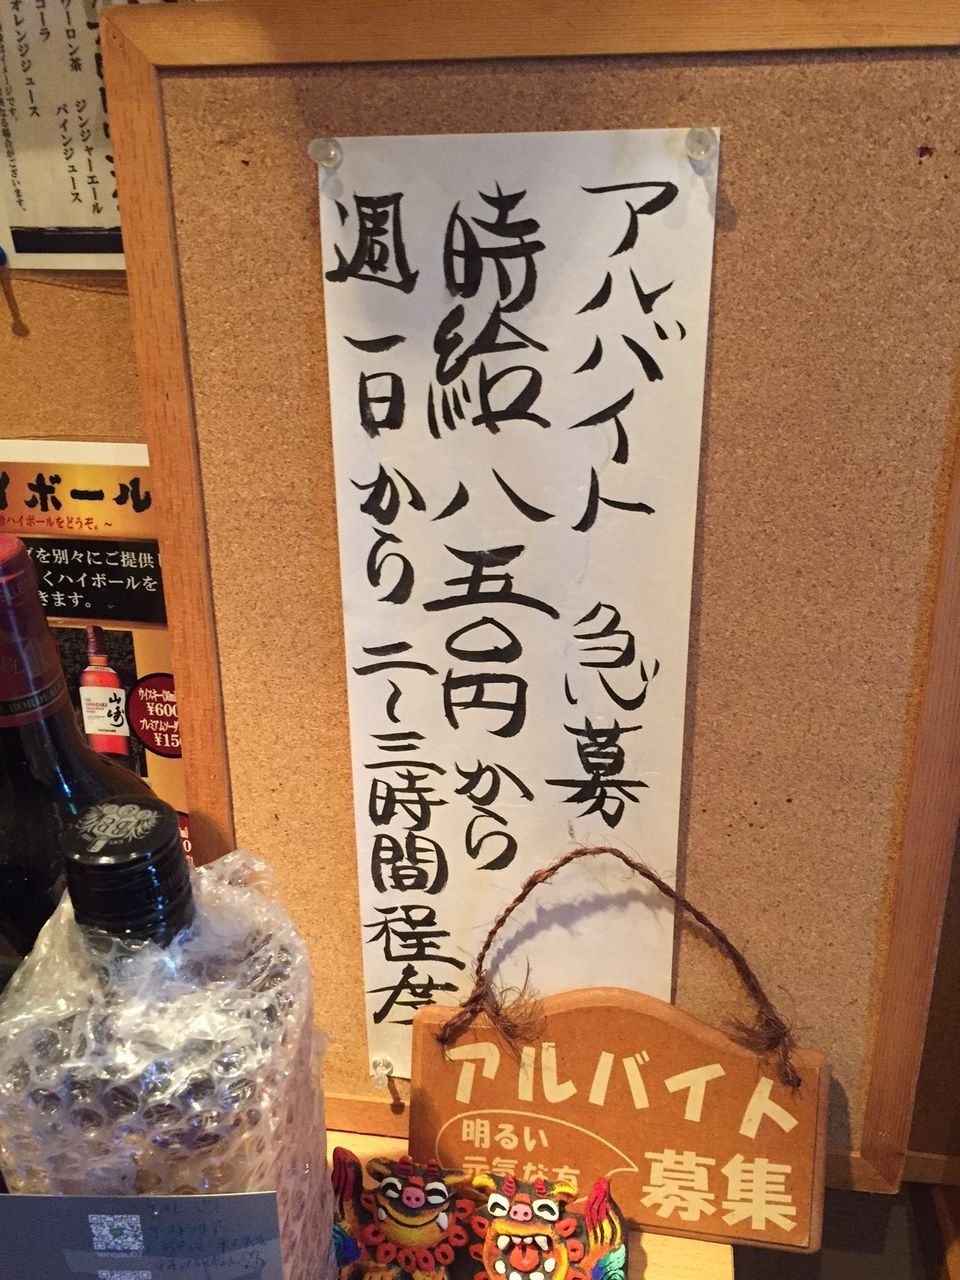 アルバイト 急募
時給 八五〇円から
週一日から 二〜三時間程度
アルバイト
募集
明るい
元気な方
ジンジャーエール
パインジュース
ウーロン茶
コーラ
オレンジジュース
イボール
ハイボールをどうぞ。〜
を別々にご提供
くハイボールを
きます。
山崎
ウイスキー(30ml
¥600
プレミアムソーダ
¥15